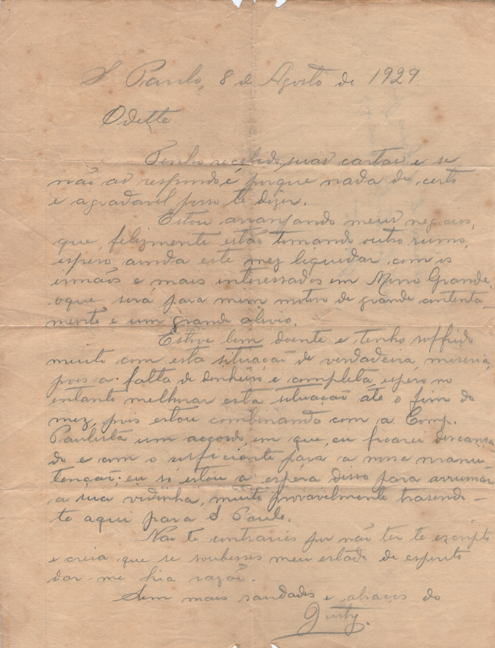 S. Paulo, 8 de Agosto de 1929
Odette
Tenho recebido suas cartas e se
não as respondi é porque nada de certo
e agradavel posso te dizer.
Estou arranjando meus negocios,
que felizmente estão tomando outro rumo,
espero ainda este mez liquidar com os
irmãos e mais interessados em Morro Grande,
o que sera para mim motivo de grande contenta-
mento e um grande alivio.
Estive bem doente e tenho soffrido
muito com esta situação de verdadeira miseria,
pois a falta de dinheiro é completa, espero no
entanto melhorar esta situação até o fim do
mez, pois estou combinando com a Comp.
Paulista um accordo, em que, eu ficarei descança-
do e com o sufficiente para a nossa manu-
tenção; eu só estou a espera disso para arrumar
a sua vidinha, muito provavelmente trazendo-
te aqui para S. Paulo.
Não te contraries por não ter te escripto
e creia que se soubesses meu estado de espirito
dar-me hia razão.
Sem mais saudades e abraços do